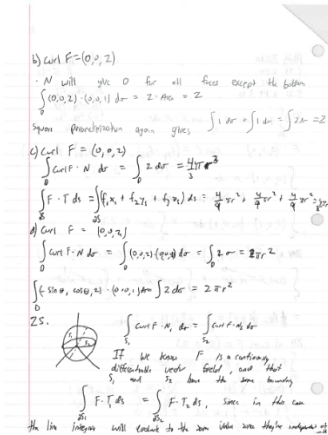 b) curl F = (0,0,2)
· N will give 0 for all faces except the bottom
∫_D (0,0,2)·(0,0,1) dσ = 2·Area = 2
Square parametrization again gives ∫ 1 dσ = ∫ 1 du = ∫ 2 = 2
c) Curl F = (0,0,2)
∫_D Curl F · N dσ = ∫_D 2 dσ = 4/3 π r³
∫ F · T ds = ∫ (f₁x₁ + f₂y₁ + f₃z₁) ds = 4/9 πr², 4/9 πr², 4/9 πr²
d) Curl F = (0,0,2)
∫_D Curl F · N dσ = ∫_D (0,0,2)· dσ = ∫ 2 σ = 2πr²
∫_D (-sin θ, cos θ, 2) · (0,0,1) dσ ∫ 2 dσ = 2πr²
25.
S₁ S₂
∫_S₁ Curl F · N₁ dσ = ∫_S₂ curl F · N₂ dσ
If we know F is a continuous
differentiable vector field, and that
S₁ and S₂ have the same boundary
∫_∂S₁ F · T₁ ds = ∫_∂S₂ F · T₂ ds, since in this case
the line integrals will evaluate to the same value since they're independent of